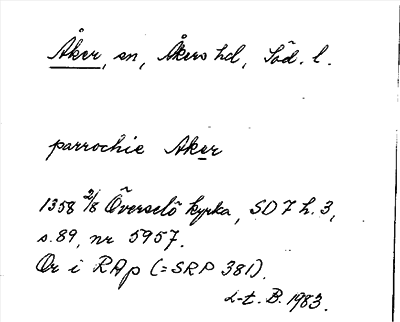 Åker, sn, Åkers hd, Söd. l.
parrochie Aker
1358 2/8 Överselö kyrka, SD 7 h. 3,
s. 89, nr 5957.
Or i RAp (= SRP 381).
L-t. B. 1983.